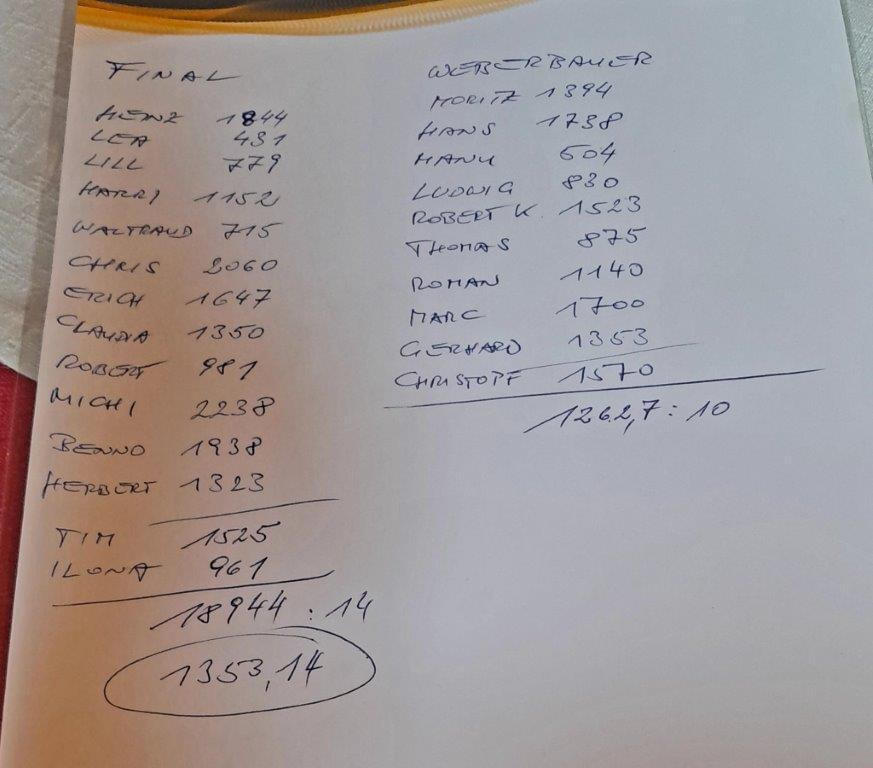 FINAL
HEINZ 1844
LEA 431
LILL 779
HARRY 1152
WALTRAUD 715
CHRIS 2060
ERICH 1647
CLAUDIA 1350
ROBERT 981
MICHI 2238
BENNO 1938
HERBERT 1323
TIM 1525
ILONA 961
18944 : 14
1353,14
WEBERBAUER
MORITZ 1394
HANS 1738
MANU 504
LUDWIG 830
ROBERT K. 1523
THOMAS 875
ROMAN 1140
MARC 1700
GERHARD 1353
CHRISTOPF 1570
1262,7 : 10